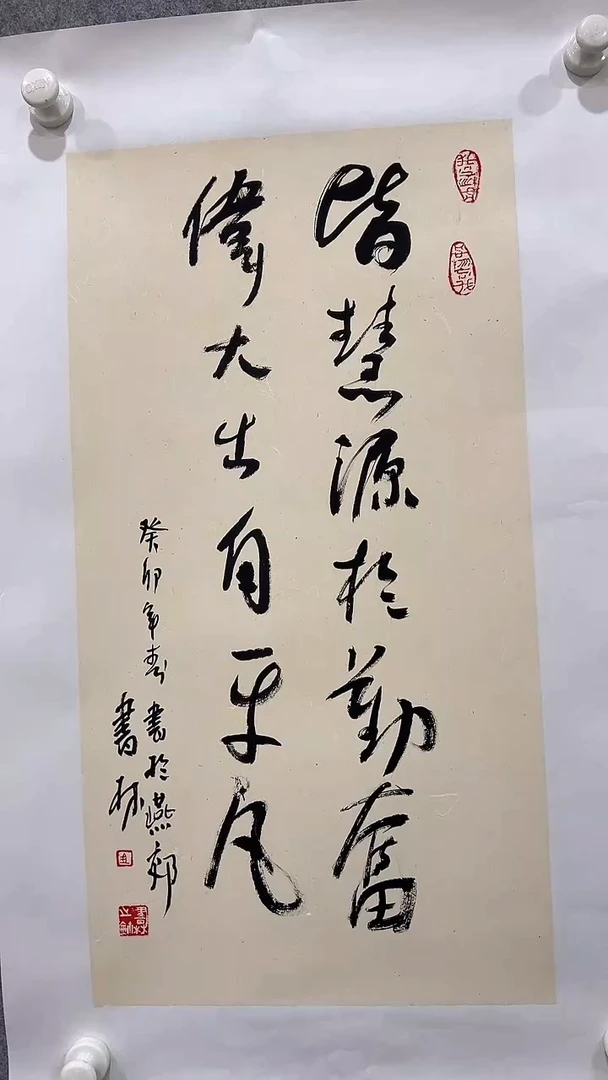 智慧源於勤奮
偉大出自平凡
癸卯年春書於燕郊
書林
書林之印